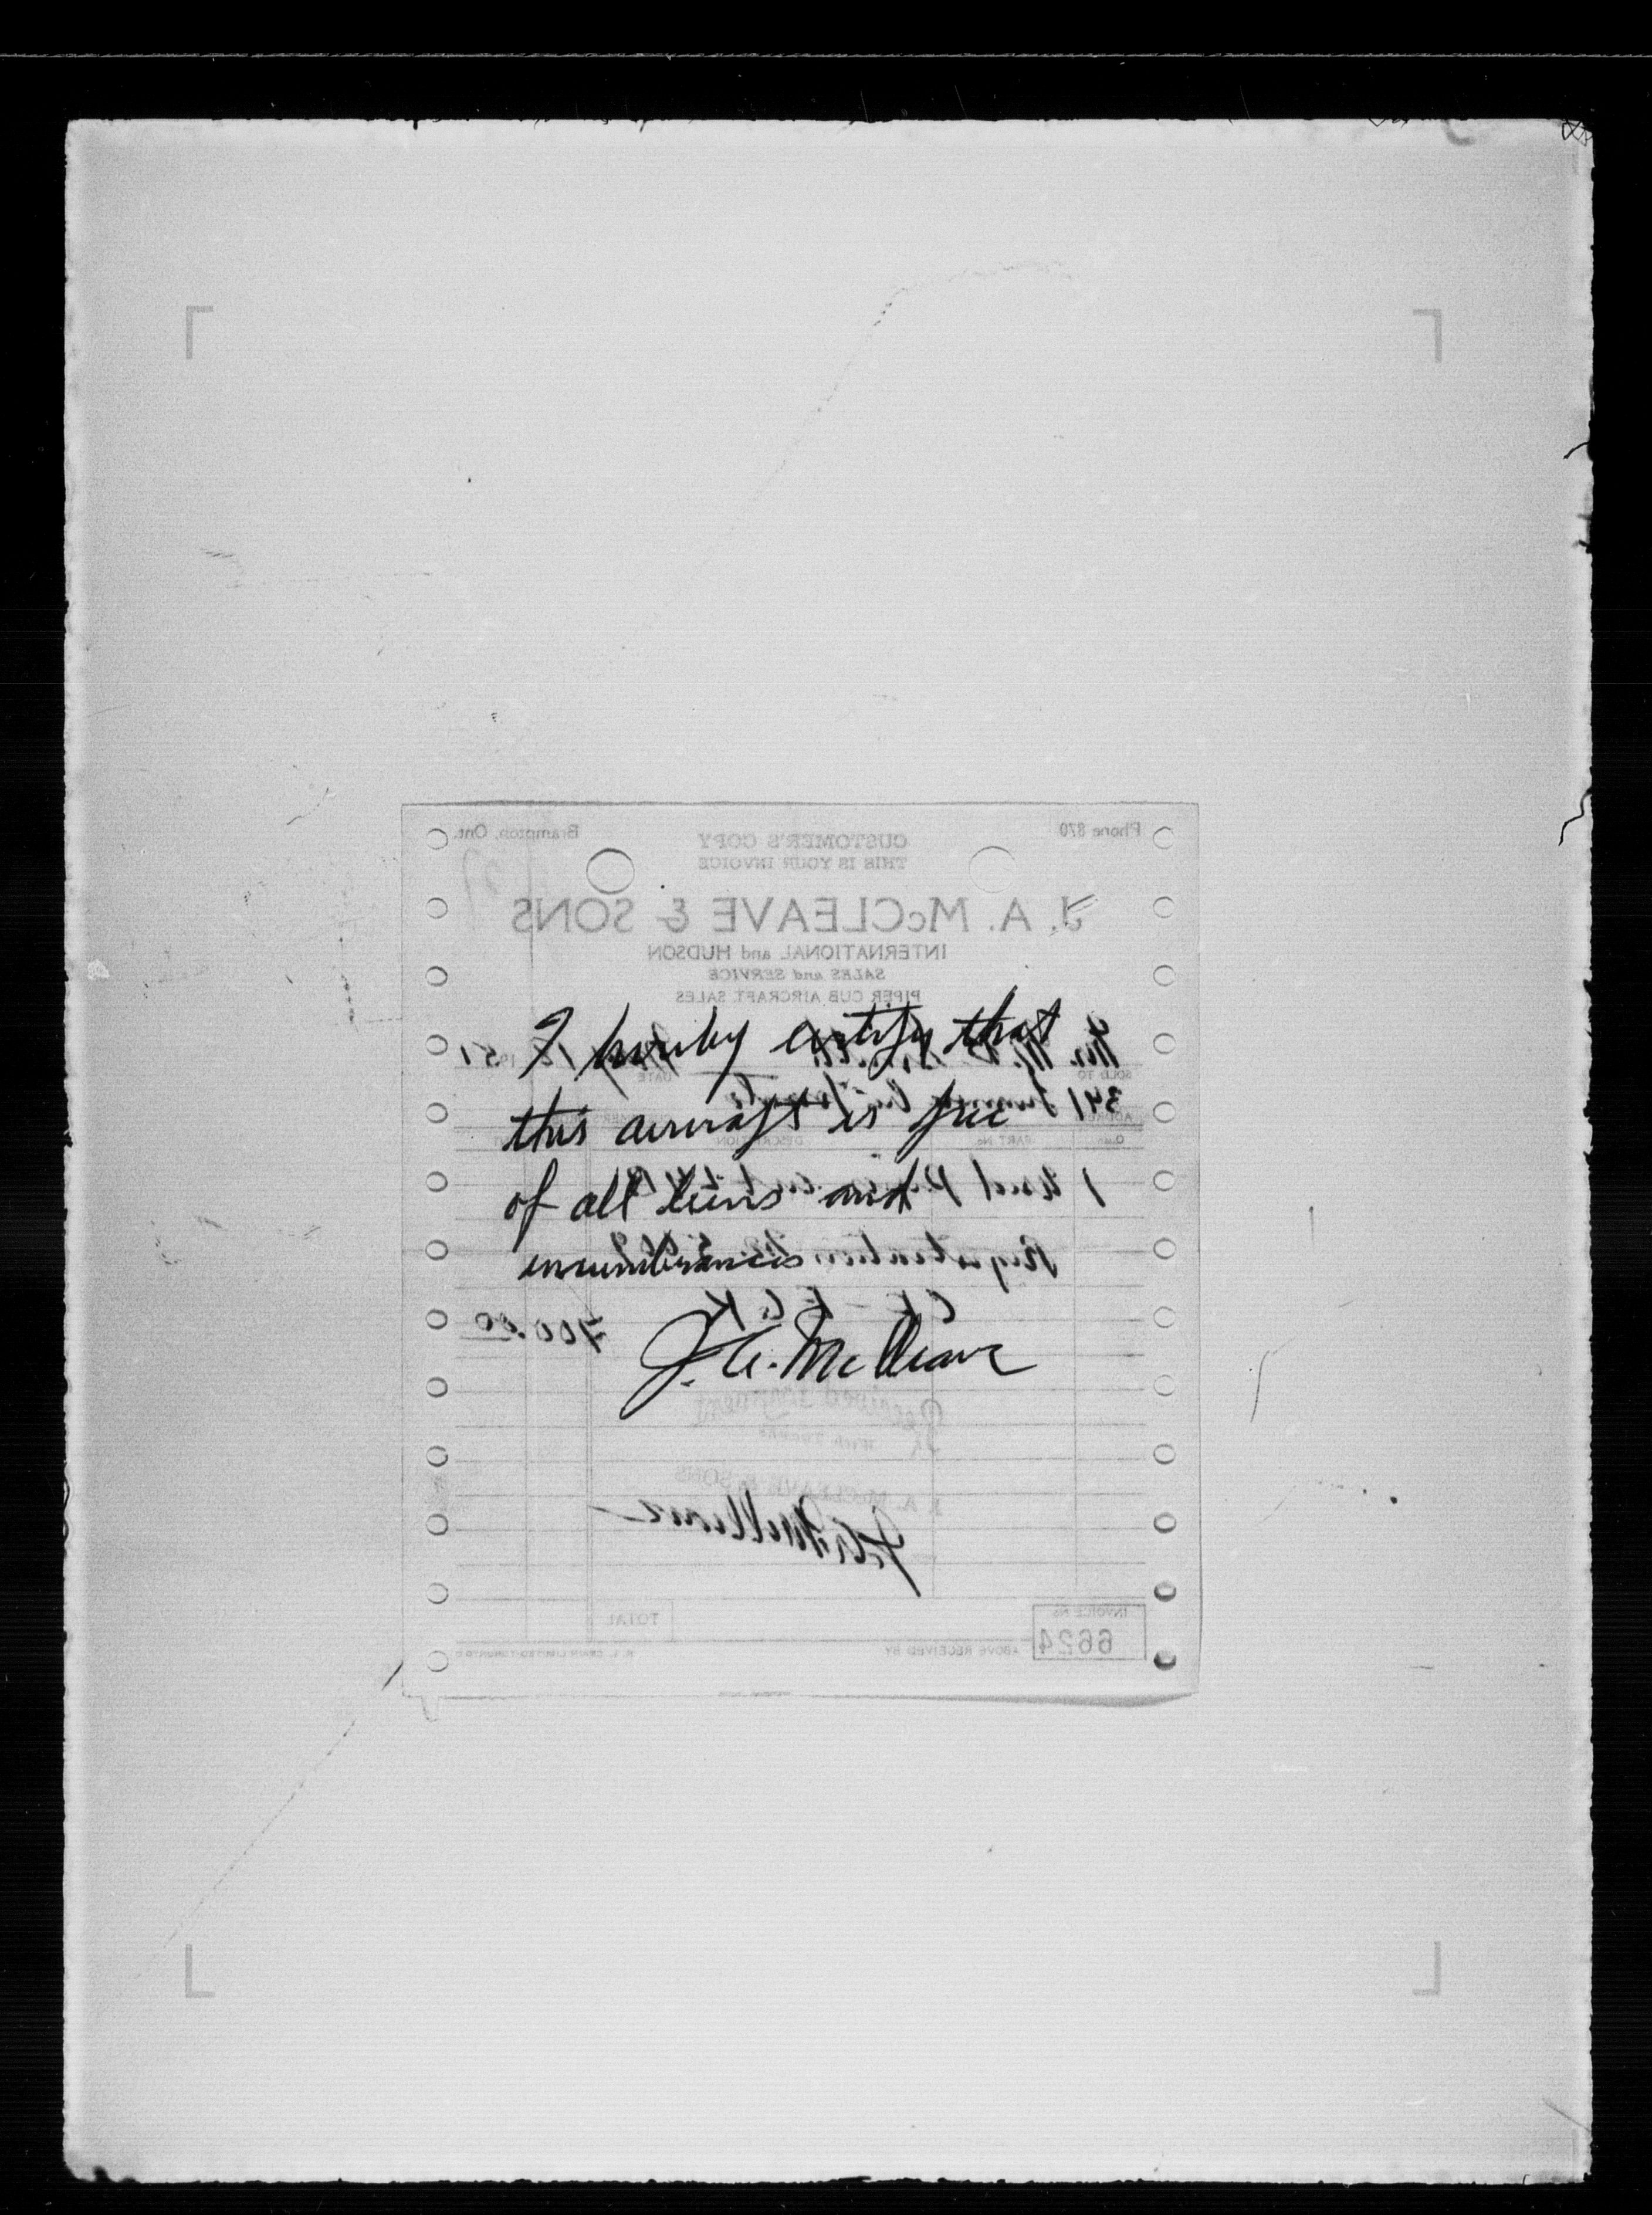 I hereby certify that
this aircraft is free
of all liens and
encumbrances
J. A. McCleave
Phone 870
CUSTOMER'S COPY
Brampton, Ont.
THIS IS YOUR INVOICE
J. A. McCLEAVE & SONS
INTERNATIONAL and HUDSON
SALES and SERVICE
PIPER CUB AIRCRAFT SALES
Mr.
SOLD TO
DATE
341
Quan.
PART No.
DESCRIPTION
1 Used
Registration
CF-EGK
700.00
Received Payment
With Thanks
J. A. McCLEAVE & SONS
J. A. McCleave
INVOICE No.
6624
TOTAL
ABOVE RECEIVED BY